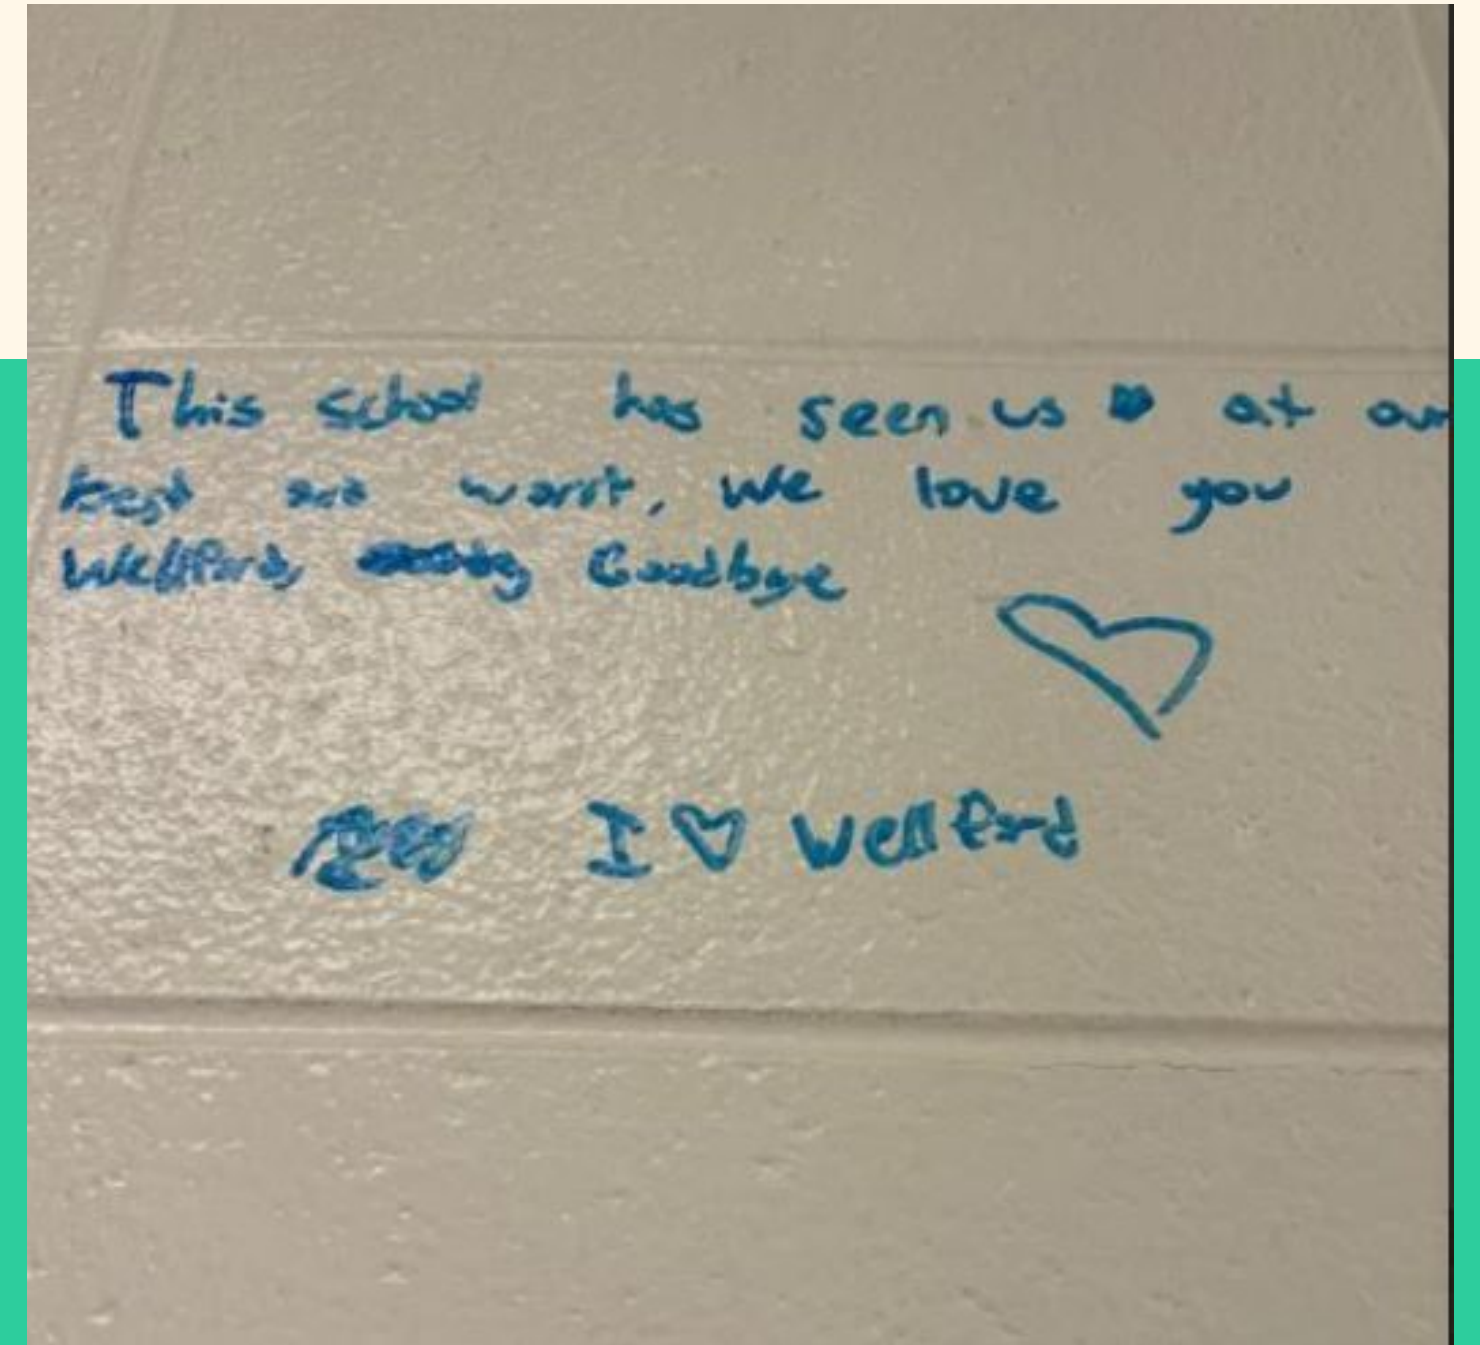 This school has seen us at our
best and worst, we love you
Wellford, Goodbye
I ♡ Wellford